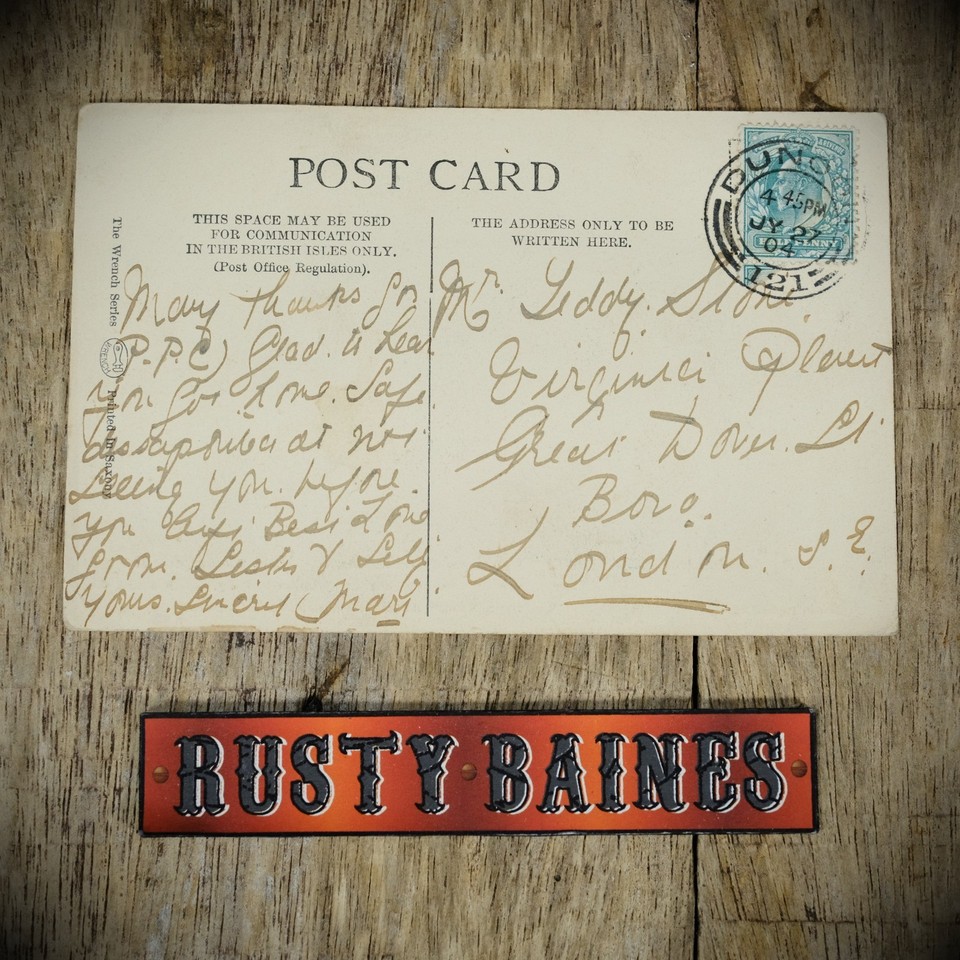 POST CARD
THIS SPACE MAY BE USED
FOR COMMUNICATION
IN THE BRITISH ISLES ONLY.
(Post Office Regulation).
THE ADDRESS ONLY TO BE
WRITTEN HERE.
DUND
4 45PM
JY 27
04
121
PENNY
The Wrench Series
Printed in Saxony
Many thanks for
P.P.C) Glad to hear
you got home. Safe
dissapointed at not
Seeing you. before
you Best Love
from. &
yours. (Mary
Mr. Teddy.
Virginia
Great Dover. St
Boro.
London. S.E.
RUSTY BAINES